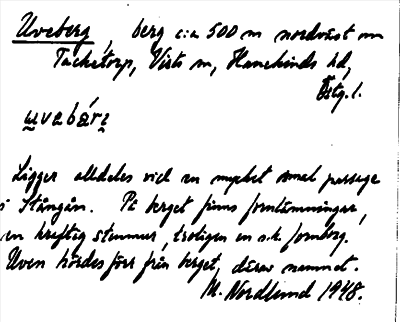 Uveberg, berg c:a 500 m nordväst om
Täcketorp, Vists sn, Hanekinds hd,
Östg. l.
uvabárɪ
Ligger alldeles vid en mycket smal passage
i Stångån. På berget finns fornlämningar,
en kraftig stenmur, troligen en s.k. fornborg.
Uven hördes förr från berget, därav namnet.
M. Nordlund 1948.